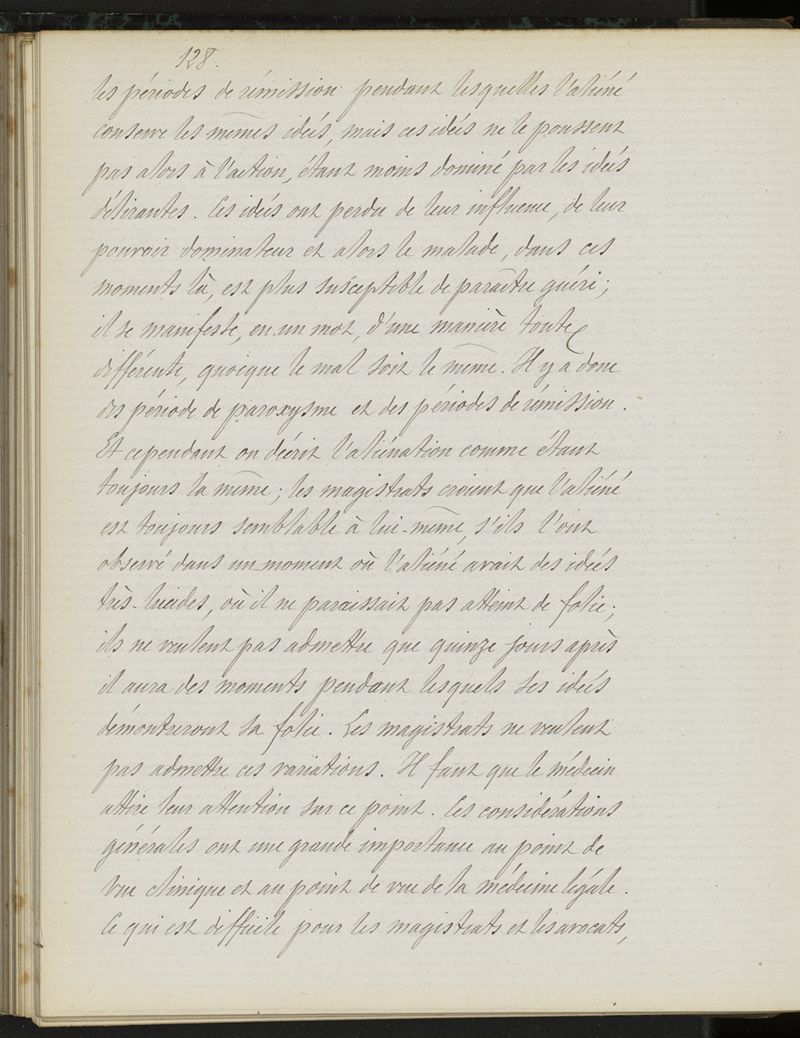 128.
les périodes de rémission pendant lesquelles l'aliéné
conserve les mêmes idées, mais ces idées ne le poussent
pas alors à l'action, étant moins dominé par les idées
délirantes. Ces idées ont perdu de leur influence, de leur
pouvoir dominateur et alors le malade, dans ces
moments là, est plus susceptible de paraître guéri;
il se manifeste, en un mot, d'une manière toute
différente, quoique le mal soit le même. Il y a donc
des période de paroxysme et des périodes de rémission.
Et cependant on décrit l'aliénation comme étant
toujours la même; les magistrats croient que l'aliéné
est toujours semblable à lui-même, s'ils l'ont
observé dans un moment où l'aliéné avait des idées
très-lucides, où il ne paraissait pas atteint de folie;
ils ne veulent pas admettre que quinze jours après
il aura des moments pendant lesquels ses idées
démontreront sa folie. Les magistrats ne veulent
pas admettre ces variations. Il faut que le médecin
attire leur attention sur ce point. Ces considérations
générales ont une grande importance au point de
vue clinique et au point de vue de la médecine légale.
Ce qui est difficile pour les magistrats et les avocats,